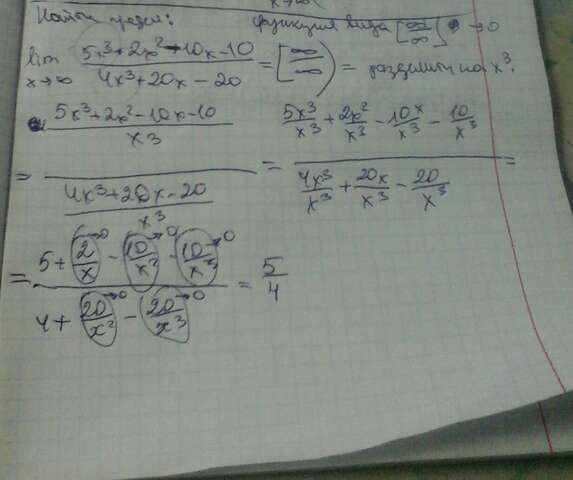 Найти предел: функция вида [∞/∞] → 0
lim x→∞ (5x³+2x²-10x-10)/(4x³+20x-20) = [∞/∞] = разделить на x³.
= ((5x³+2x²-10x-10)/x³)/((4x³+20x-20)/x³) = (5x³/x³+2x²/x³-10x/x³-10/x³)/(4x³/x³+20x/x³-20/x³) =
= (5+2/x→0-10/x²→0-10/x³→0)/(4+20/x²→0-20/x³→0) = 5/4